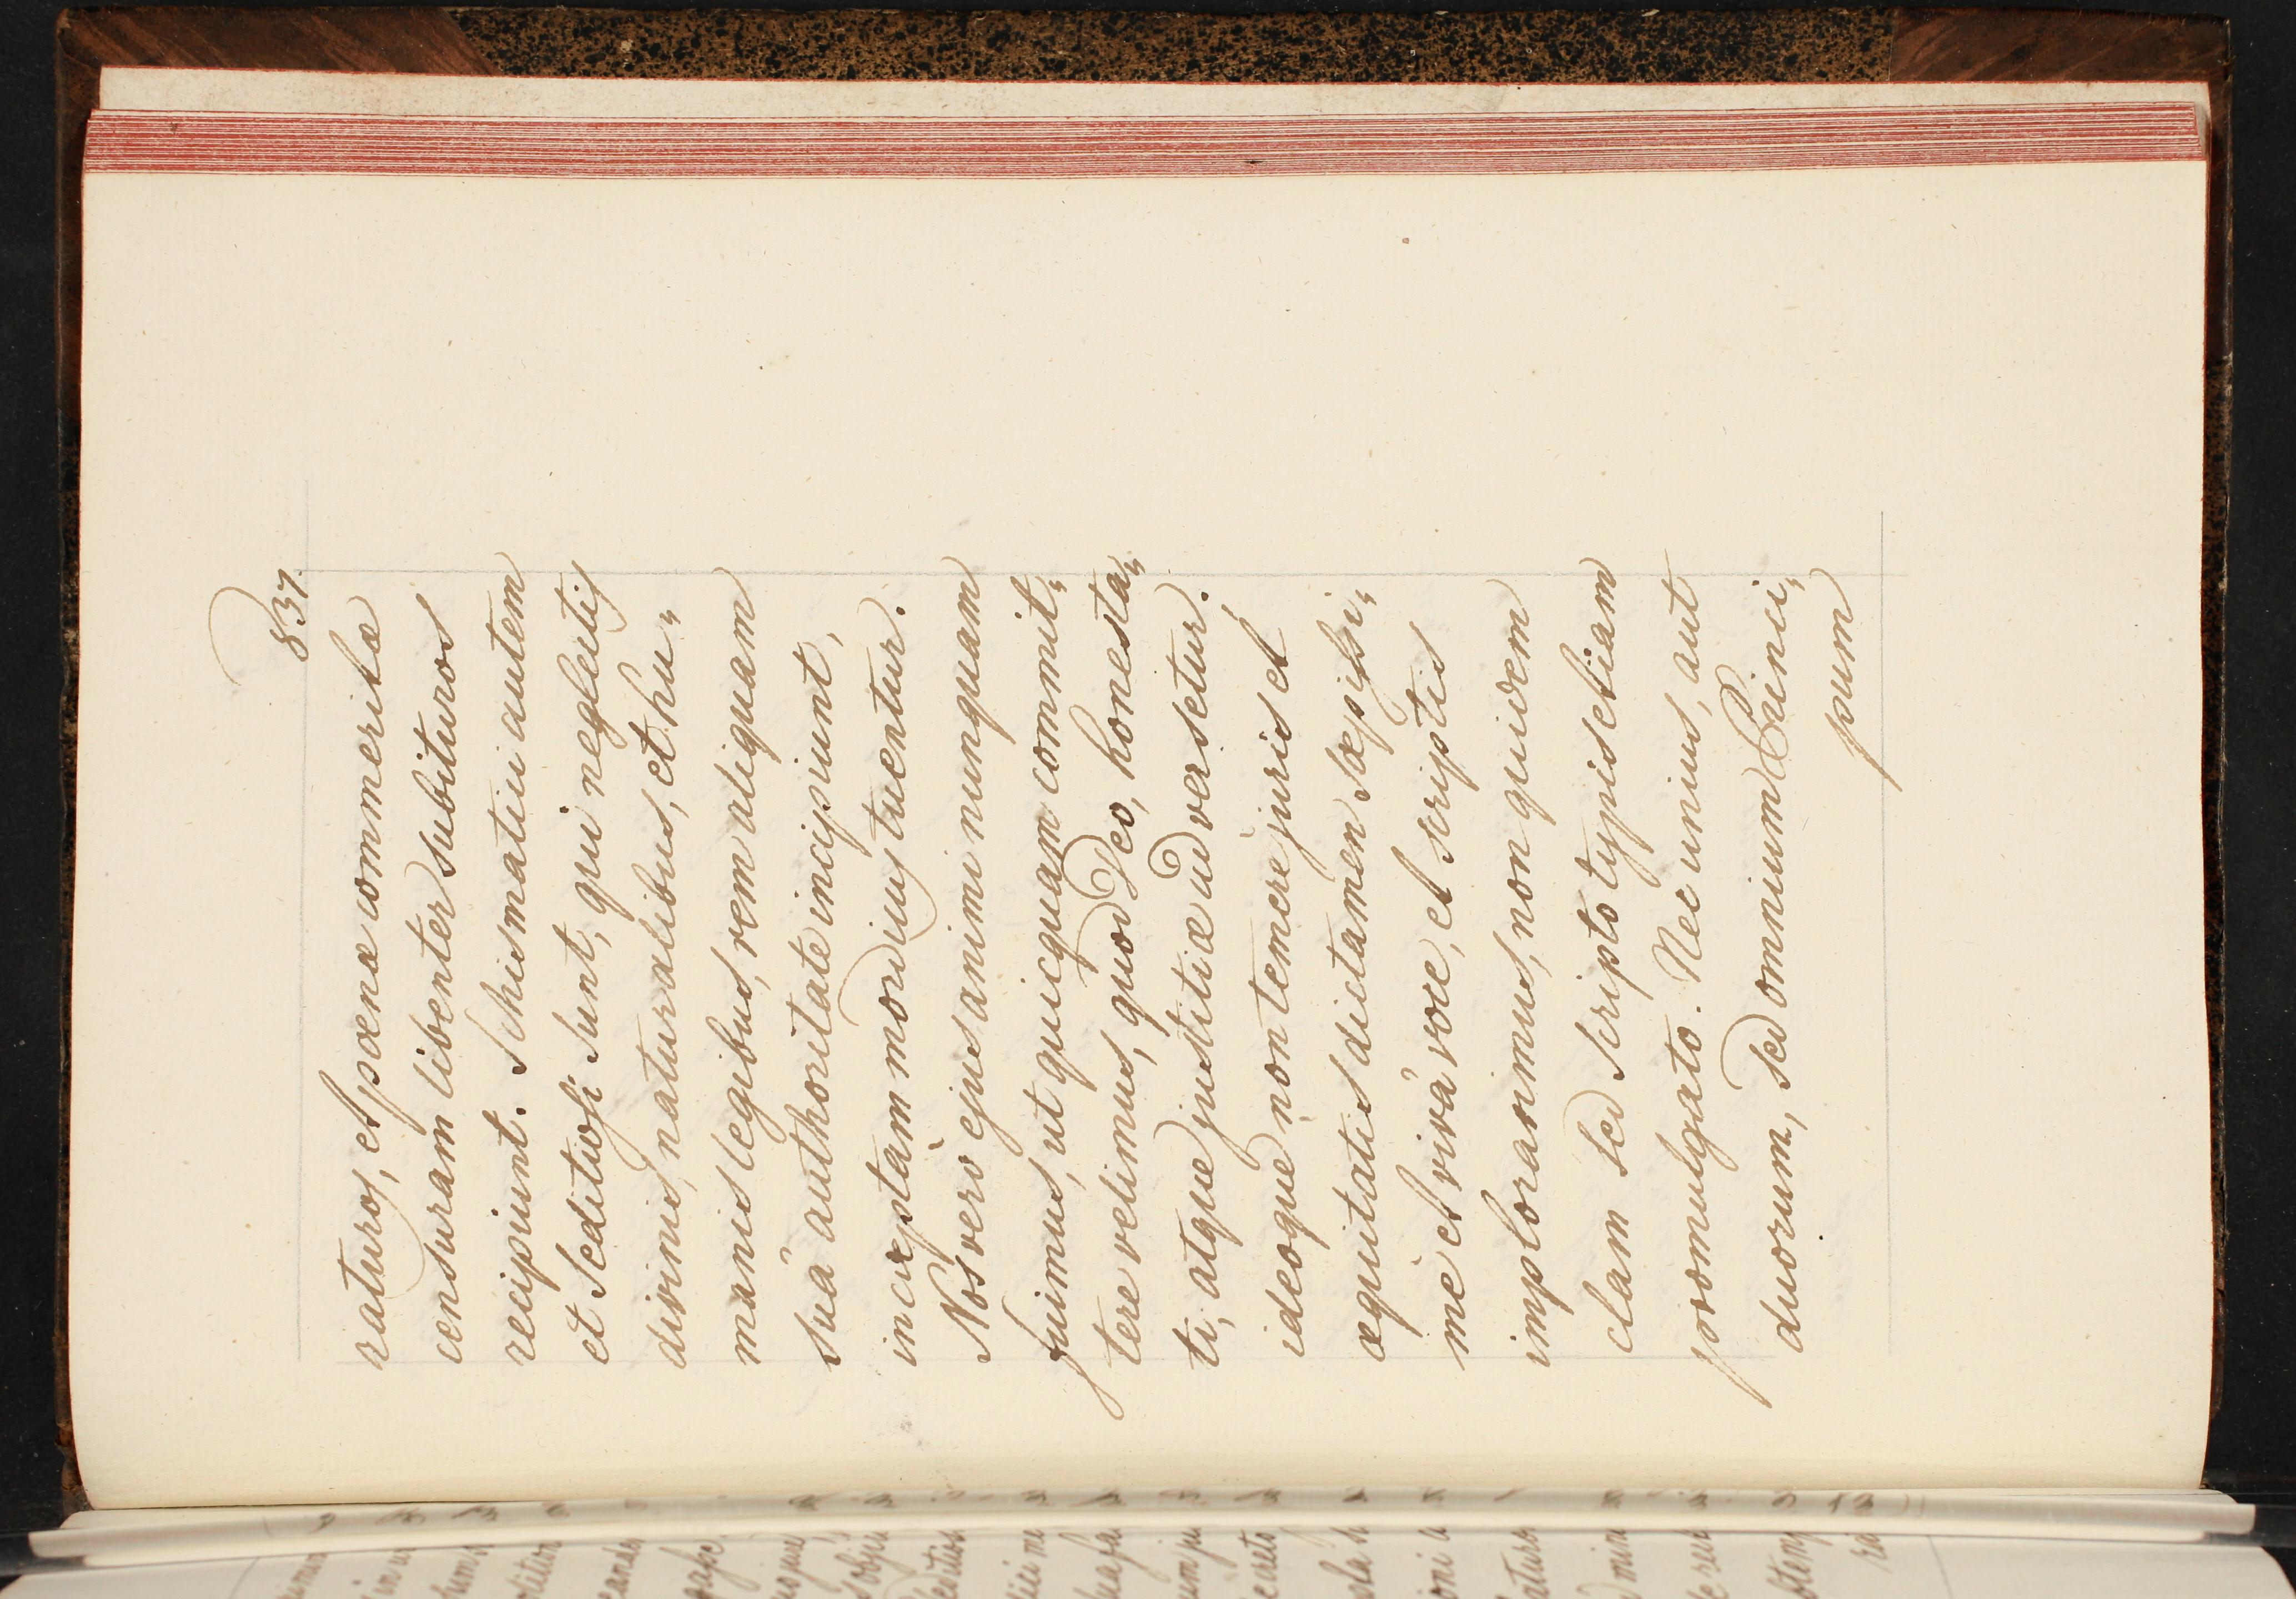 837.
raturos, et poenæ commeritæ
censuram libenter subituros
recipiunt. Schismatici autem
et Seditiosi sunt, qui neglectis
divinis, naturalibus, et hu„
manis legibus, rem aliquam
suâ authoritate incipiunt,
incæptam mordicus tuentur.
Nos vero ejus animi nunquam
fuimus, ut quicquam commit„
tere velimus, quod Deo, honesta„
ti, atque justitiæ adversetur.
ideoque non temere juris et
æquitatis dictamen sæpissi„
me et vivâ voce, et scriptis
imploravimus, non quidem
clam sed scripto typis etiam
promulgato. Nec unius, aut
duorum, sed omnium Princi„
pum